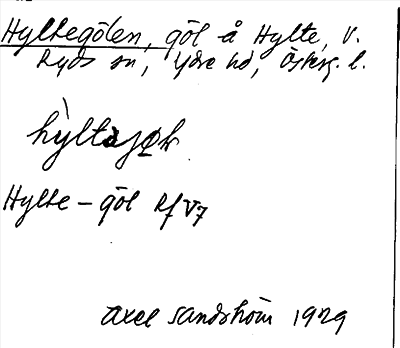 Hyltegölen, göl å Hylte, V.
Ryds sn, Ydre hd, Österg. l.
Hylte-göl Rf V7
Axel Sandström 1929